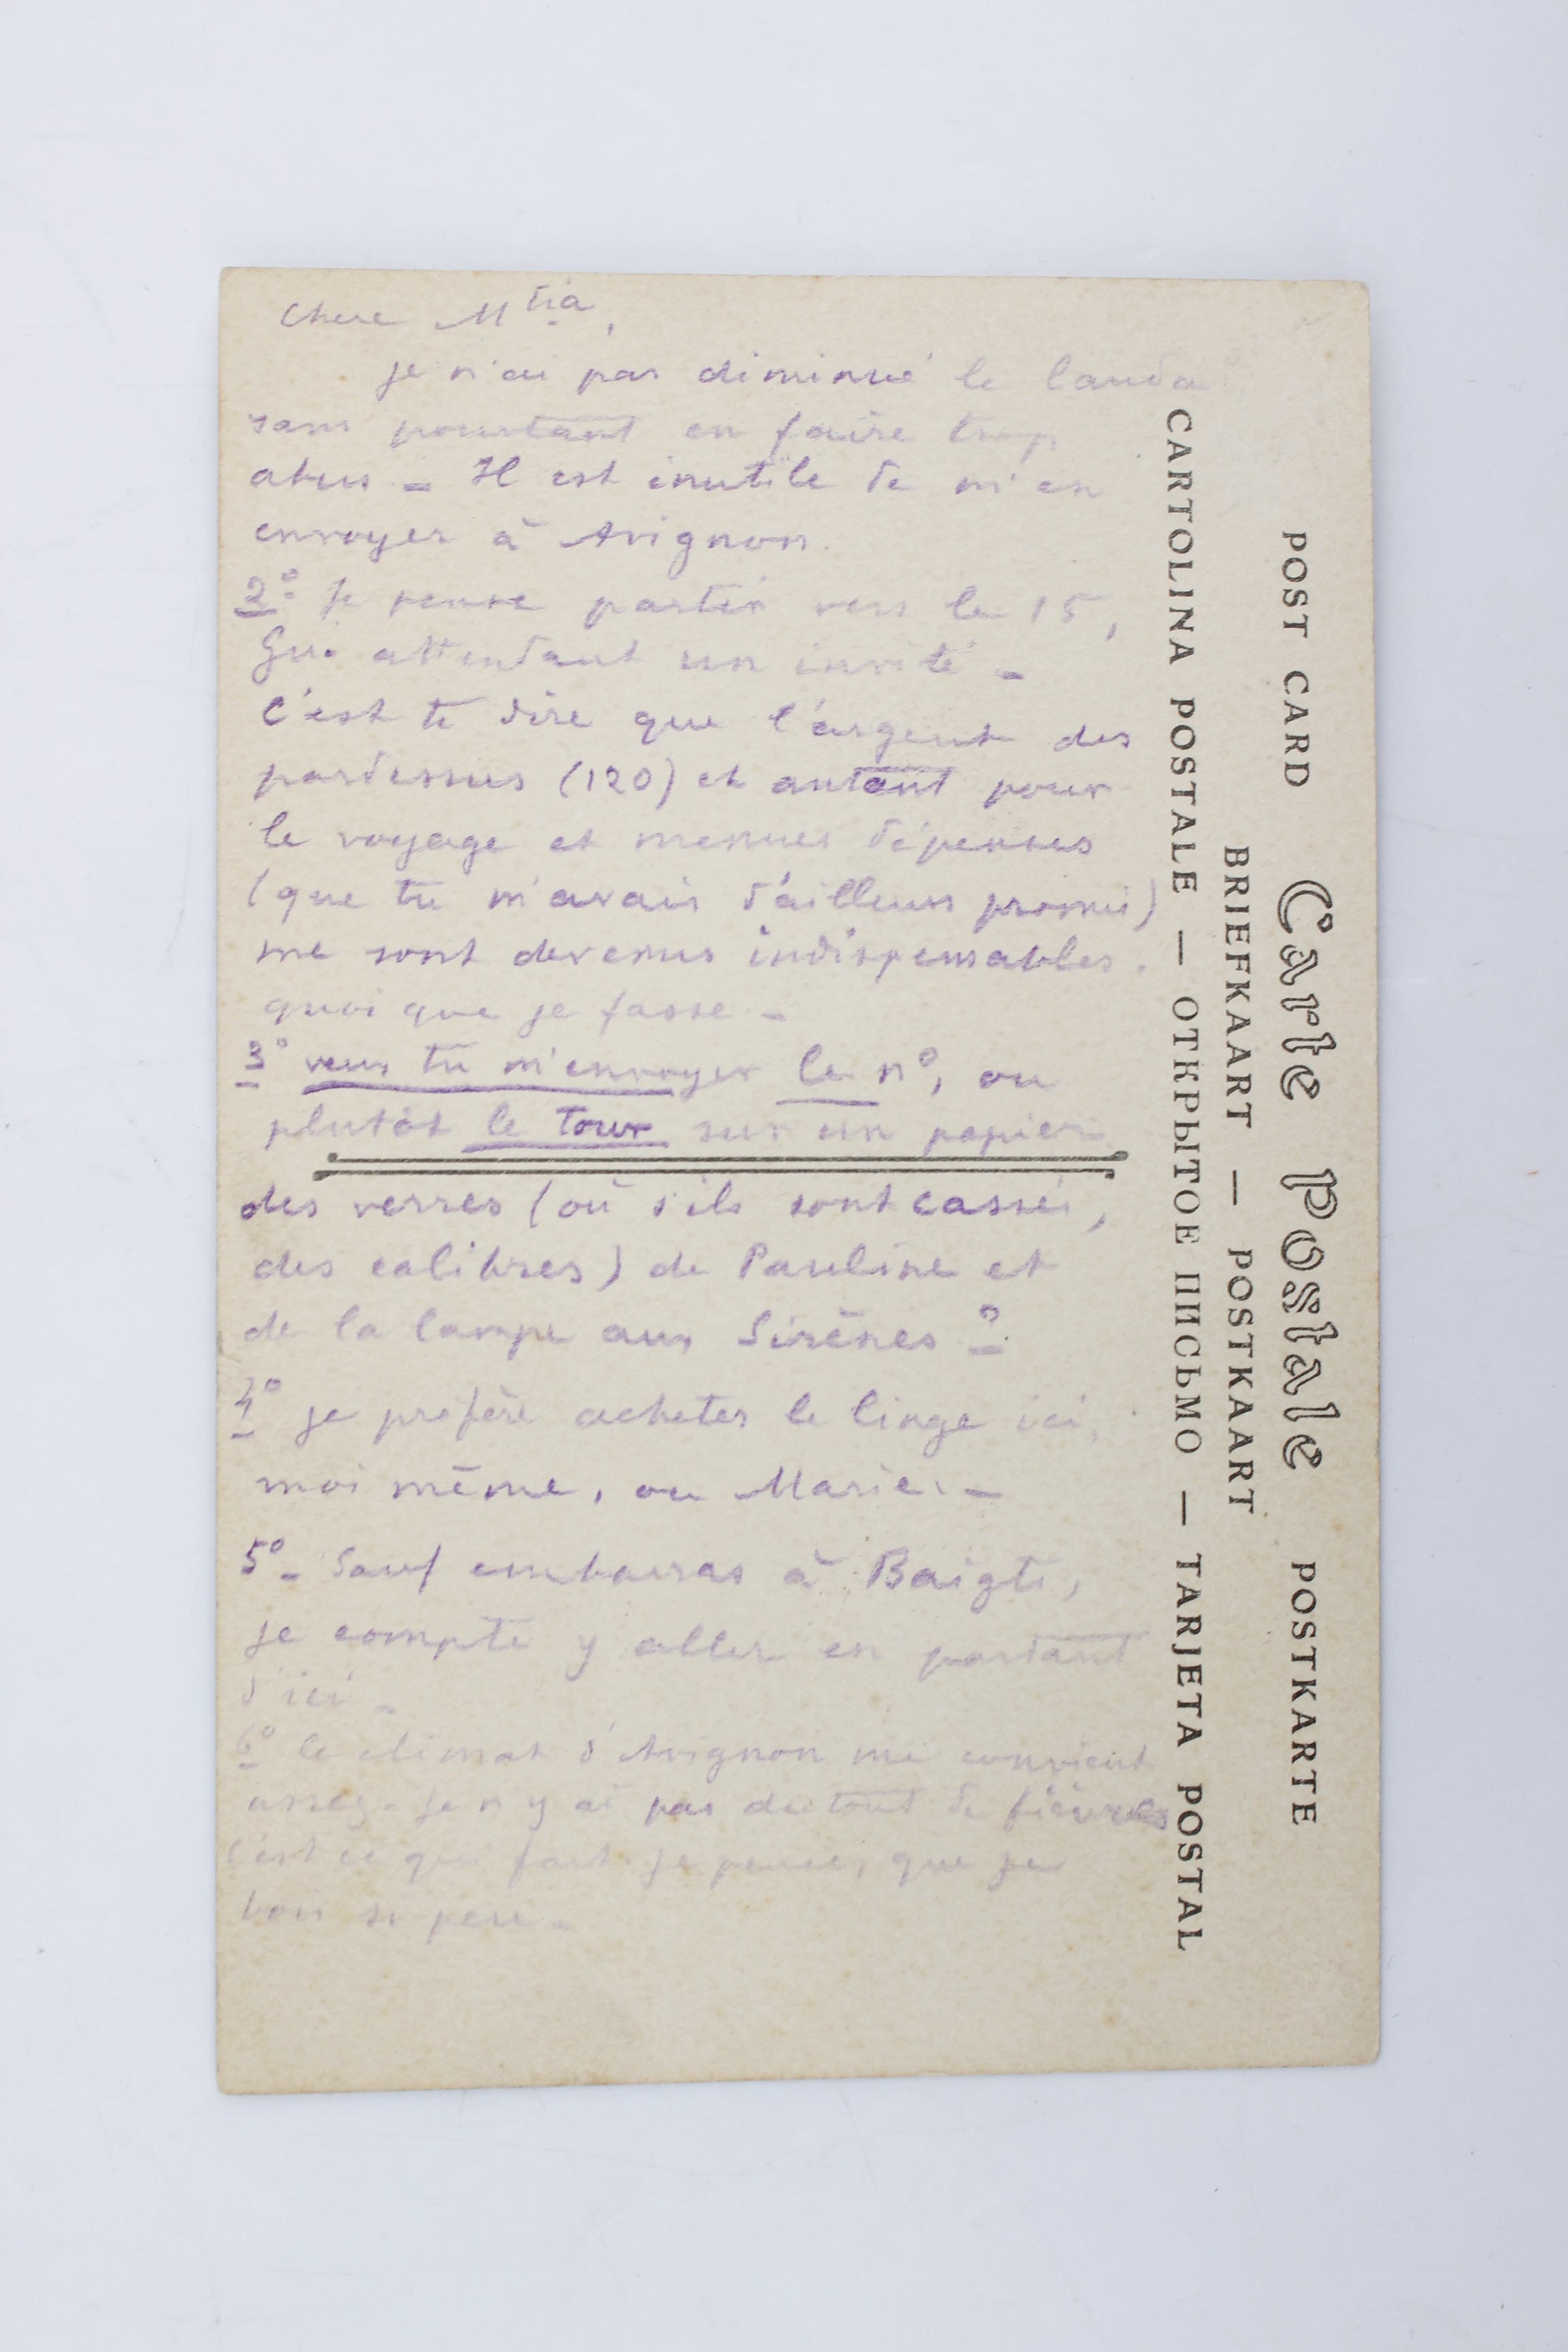 Chere M^tia,
je n'ai pas diminué le lauda
sans pourtant en faire trop
abus - Il est inutile de m'en
envoyer à Avignon.
2° Je pense partir vers le 15,
Guo attendant un invité -
c'est te dire que l'argent des
pardessus (120) et autant pour
le voyage et menues dépenses
(que tu m'avais d'ailleurs promis)
me sont devenus indispensables.
quoi que je fasse -
3° veux tu m'envoyer le n°, ou
plutôt le tour sur un papier
des verres (où s'ils sont cassés,
des calibres) de Pauline et
de la lampe aux Sirènes ?
4° je préfère acheter le linge ici,
moi même, ou Marie. -
5° - Sauf embarras à Baigts,
je compte y aller en partant
d'ici -
6° le climat d'Avignon me convient
assez - Je n'y ai pas du tout de fièvres
c'est ce qui fait, je pense, que je
bois si peu -
POST CARD Carte Postale POSTKARTE
BRIEFKAART — POSTKAART
CARTOLINA POSTALE — ОТКРЫТОЕ ПИСЬМО — TARJETA POSTAL